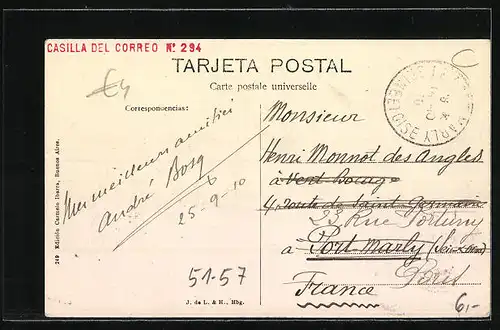 CASILLA DEL CORREO Nº 294
TARJETA POSTAL
Carte postale universelle
Correspondencias:
mes meilleurs amitiés
André Bosq
25-9-10
249 Edición Carmelo Ibarra, Buenos Aires.
51-57
J. de L. & H., Hbg.
MARLY
OISE
Monsieur
Henri Monnot des Angles
à Vert Bocage
4, route de Saint Germain
23 Rue Fortuny
à Port-Marly (Seine-&-Oise)
Paris
France
6,-